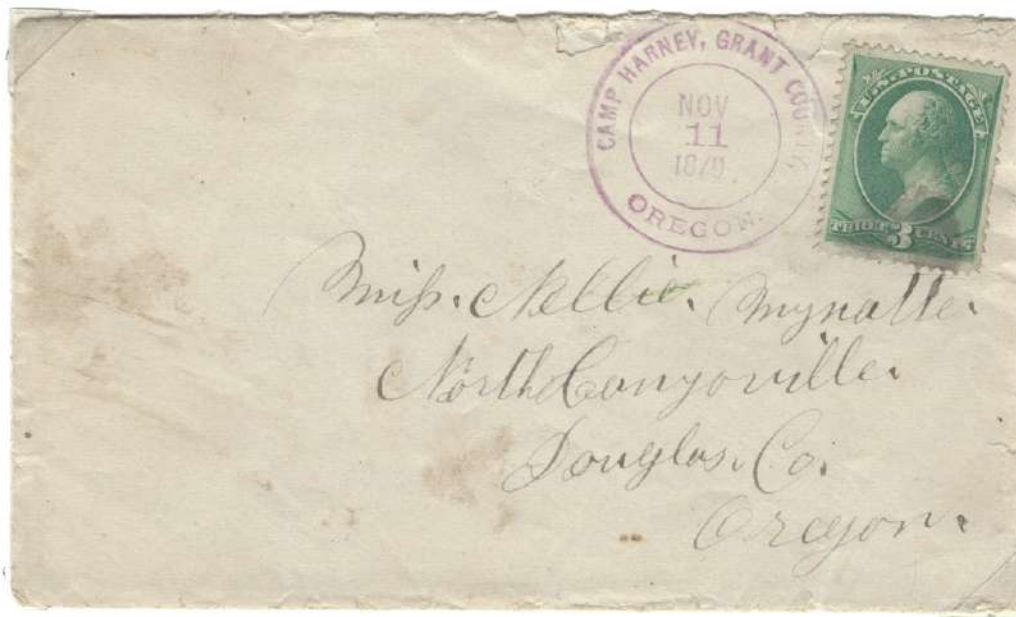 CAMP HARNEY, GRANT COUNTY
NOV
11
1879
OREGON.
U.S. POSTAGE
THREE 3 CENTS
Miss. Nellie. Mynatte.
North Canyoville.
Douglas. Co.
Oregon.